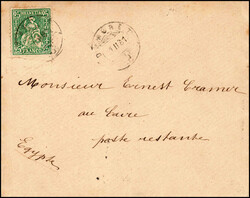 HELVETIA
FRANCO
Monsieur Ernest Cramer
au Caire
poste restante
Egypte